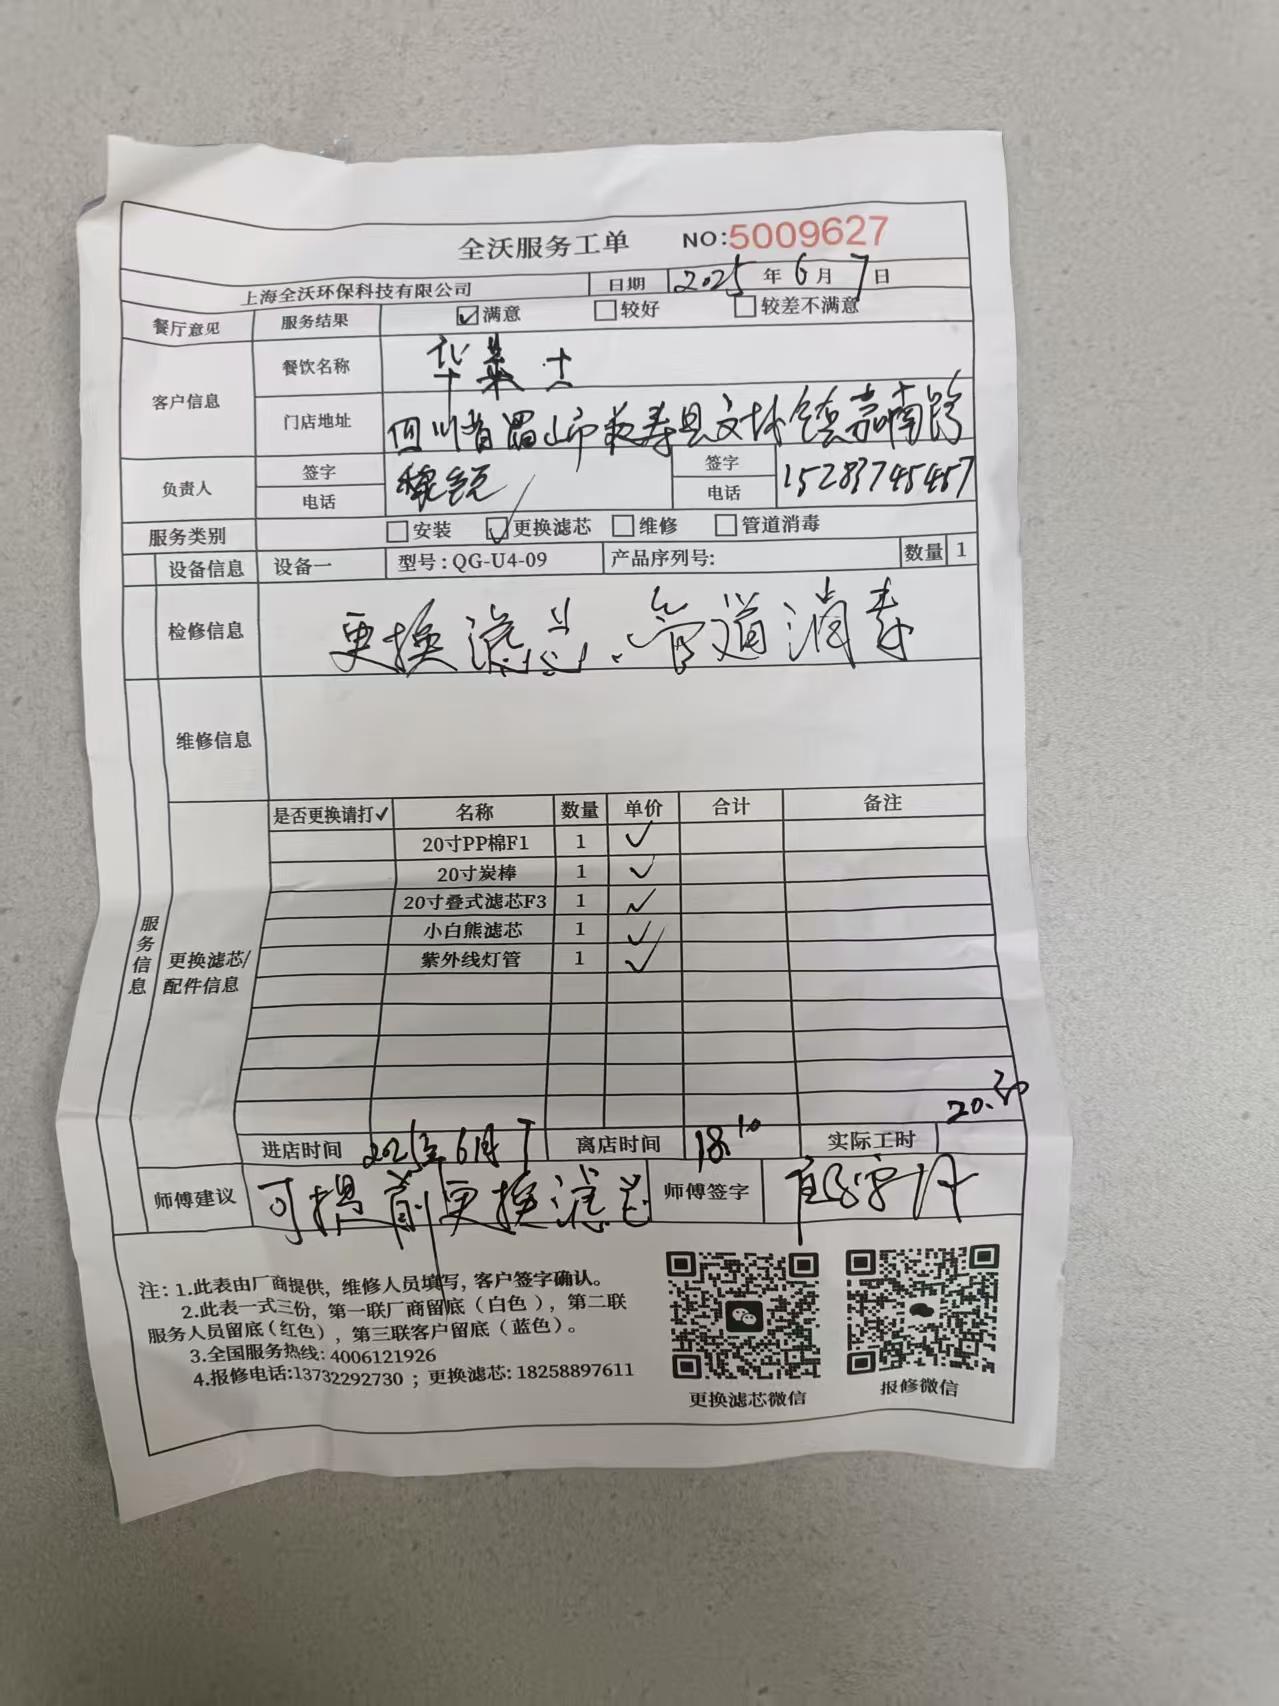 全沃服务工单 NO:5009627
上海全沃环保科技有限公司 日期 2025年6月7日
餐厅意见 服务结果 ☑满意 □较好 □较差不满意
客户信息 餐饮名称 华莱士
门店地址 四川省眉山市仁寿县文林镇嘉南路
负责人 签字 电话 签字 电话 15283745457
服务类别 □安装 ☑更换滤芯 □维修 □管道消毒
设备信息 设备一 型号:QG-U4-09 产品序列号: 数量 1
检修信息 更换滤芯、管道消毒
维修信息
服务信息
更换滤芯/配件信息
是否更换请打✓ 名称 数量 单价 合计 备注
20寸PP棉F1 1 ✓
20寸炭棒 1 ✓
20寸叠式滤芯F3 1 ✓
小白熊滤芯 1 ✓
紫外线灯管 1 ✓
进店时间 2025年6月7 离店时间 18:10 实际工时 20:30
师傅建议 可提前更换滤芯 师傅签字
注:1.此表由厂商提供,维修人员填写,客户签字确认。
2.此表一式三份,第一联厂商留底(白色),第二联
服务人员留底(红色),第三联客户留底(蓝色)。
3.全国服务热线:4006121926
4.报修电话:13732292730;更换滤芯:18258897611
更换滤芯微信 报修微信